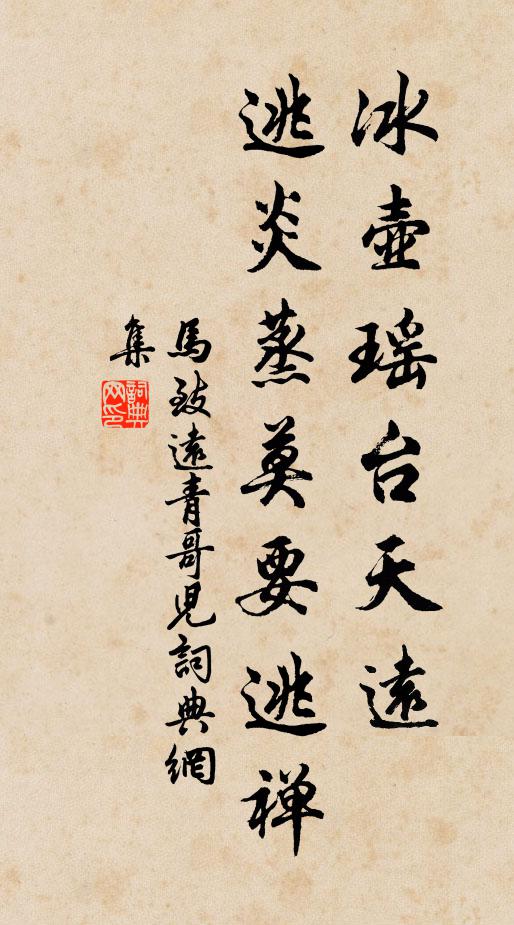 冰壺瑶台天遠
逃炎蒸莫要逃禅
馬致遠青哥児詞典網
集
詞典
网印